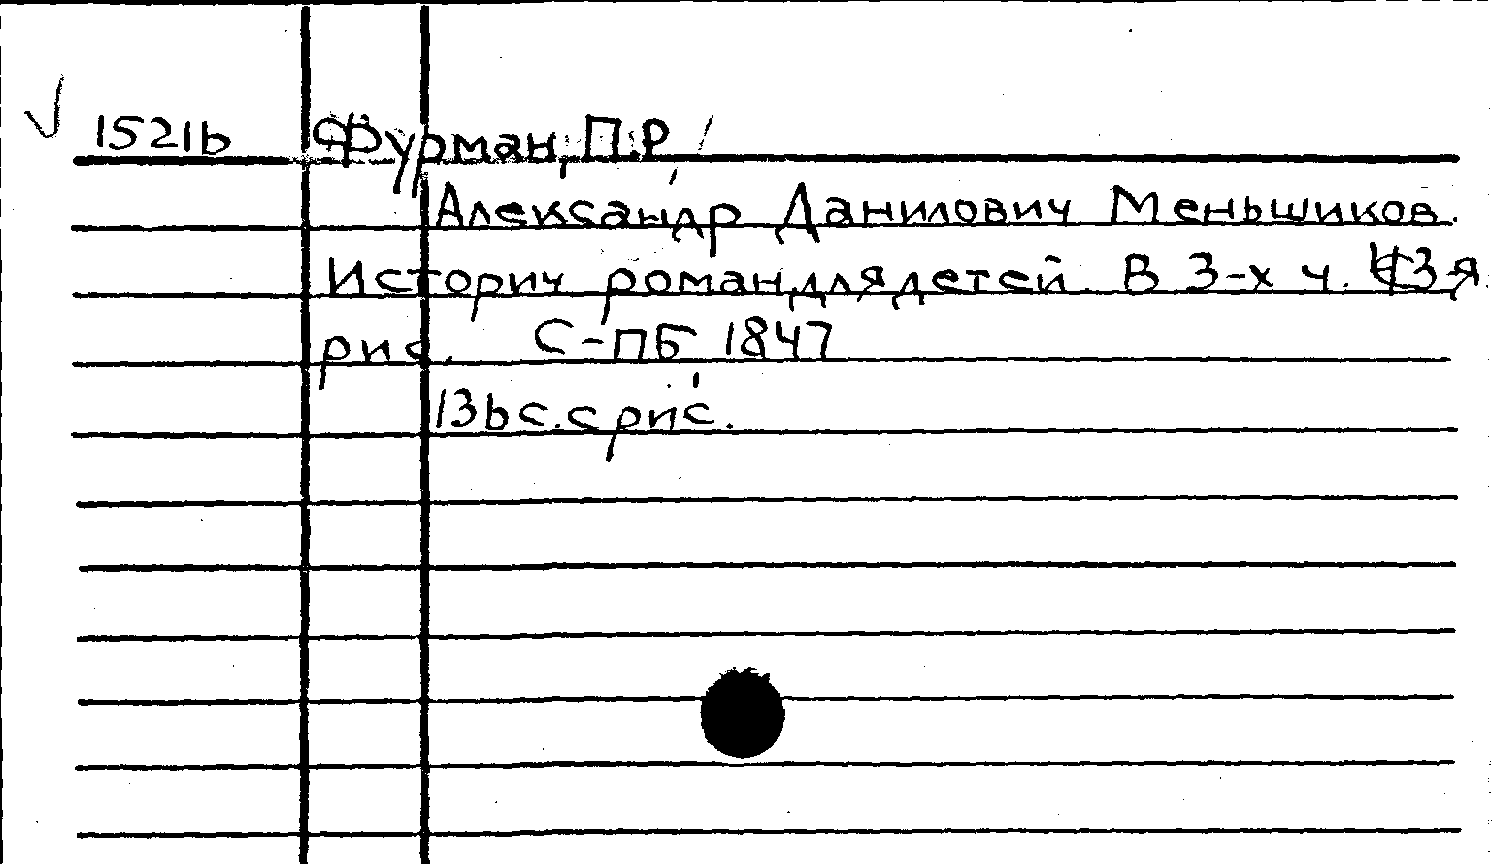 √ 1521b Фурман, П.Р.
Александр Данилович Меньшиков.
Историч роман для детей. В 3-х ч. Ч 3-я
рис. С-ПБ 1847
136 с. с рис.